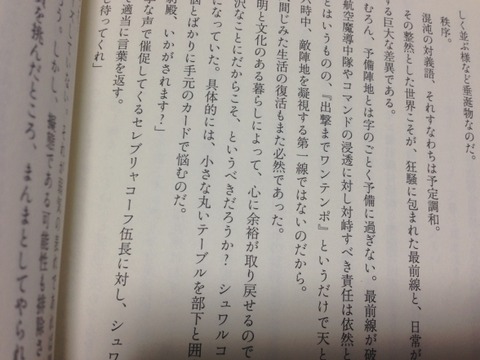 しく並ぶ様など垂涎物なのだ。
秩序。
混沌の対義語、それすなわちは予定調和。
その整然とした世界こそが、狂騒に包まれた最前線と、日常が
する巨大な差異である。
むろん、予備陣地とは字のごとく予備に過ぎない。最前線が破
航空魔導中隊やコマンドの浸透に対し対峙すべき責任は依然と
とはいうものの、『出撃までワンテンポ』というだけで天と
六時中、敵陣地を凝視する第一線ではないのだから。
間じみた生活の復活もまた必然であった。
明と文化のある暮らしによって、心に余裕が取り戻せるので
沢なことにだからこそ、というべきだろうか? シュワルコ
になっていた。具体的には、小さな丸いテーブルを部下と囲
悩とばかりに手元のカードで悩むのだ。
尉殿、いかがされます?」
な声で催促してくるセレブリャコーフ伍長に対し、シュワ
適当に言葉を返す。
し待ってくれ」
しかし、擬態である可能性も排除さ
を挑んだところ、まんまとしてやられ